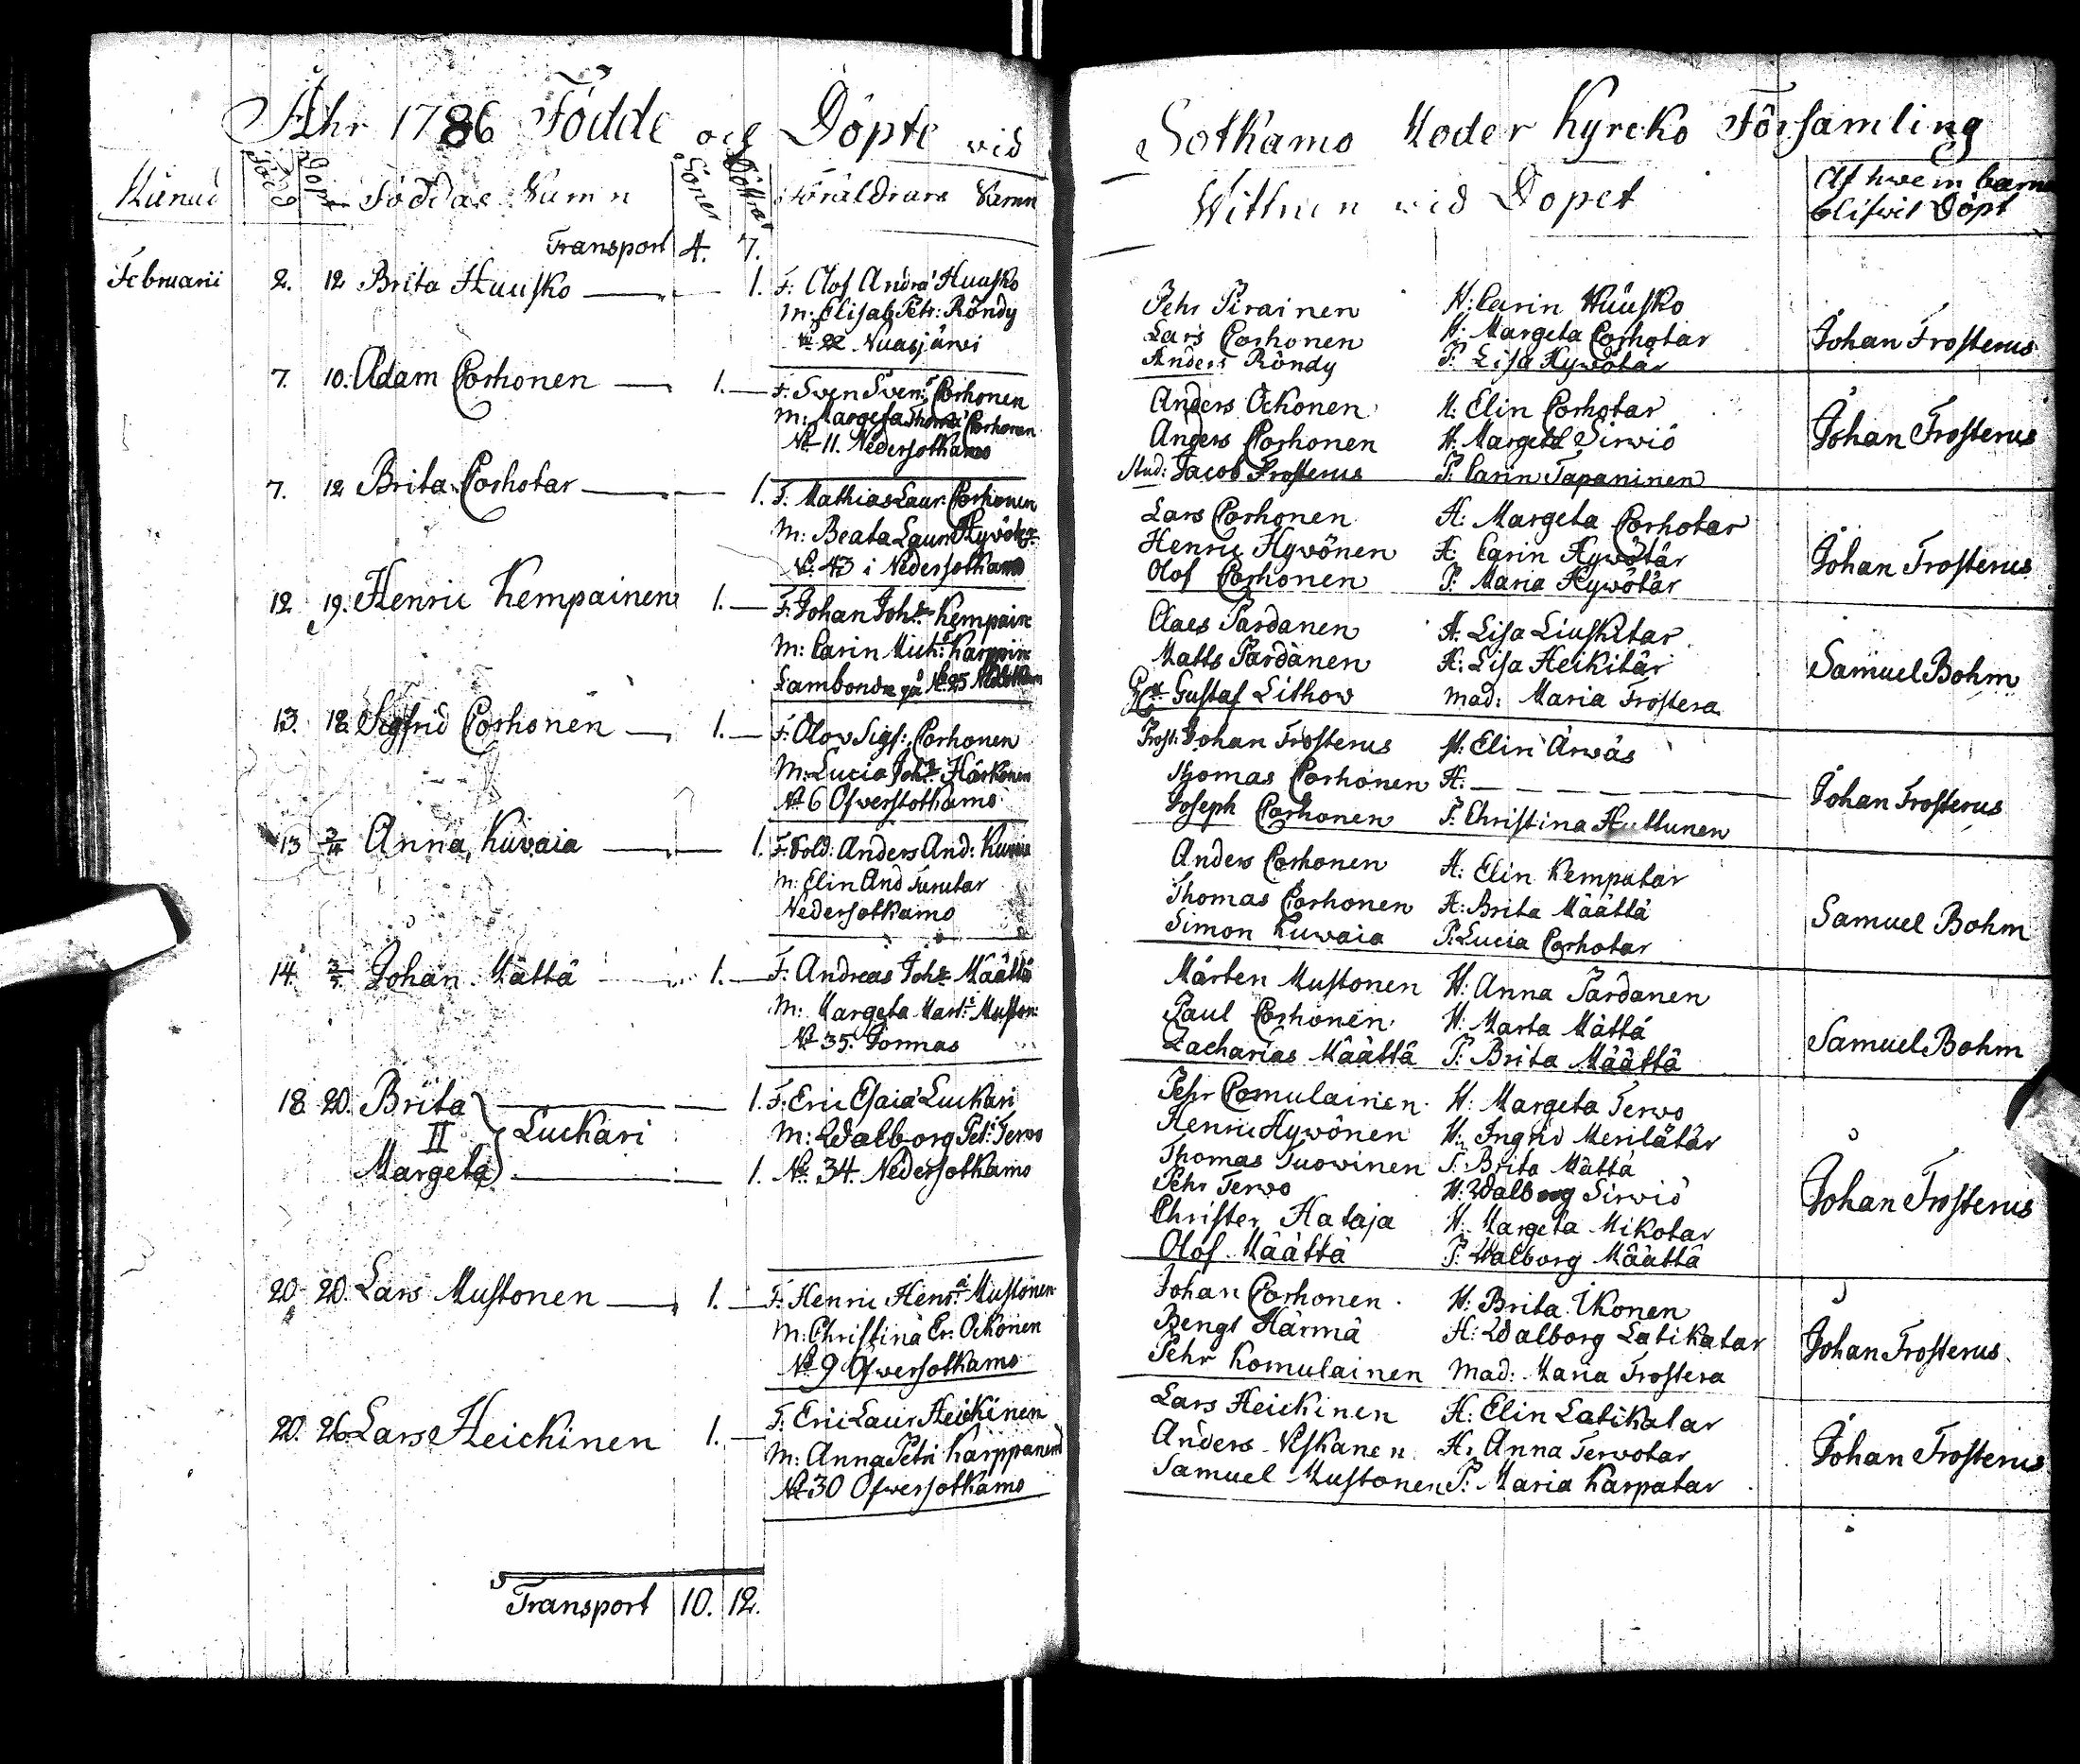 Åhr 1786 Födde och Döpte vid
Månad Född Döpt Föddas Namn Söner Döttrar Föräldrars Namn
Transport 4. 7.
Februarii 2. 12 Brita Huusko 1. F: Olof Andrä Huusko
M: Elisab Petr: Röndy
No 22 Nuasjärvi
7. 10. Adam Corhonen 1. F: Sven Sven: Corhonen
M: Margeta Thomæ Corhonen
No 11. Nedersotkamo
7. 12 Brita Corhotar 1. F: Mathias Laur: Corhonen
M: Beata Laur Hyvötr
No 43 i Nedersotkamo
12 19. Henric Kempainen 1. F: Johan Joh: Kempain
M: Carin Mich: Karppin
No 25
13. 18. Sigfrid Corhonen 1. F: Olov Sigf: Corhonen
M: Lucia Joh: Härkönen
No 6 Öfversotkamo
13 Anna Kuvaia 1. F: Sold: Anders And: Kuvaia
M: Elin And
Nedersotkamo
14. Johan Mättä 1. F: Andreas Joh: Määttä
M: Margeta Mart: Muston:
No 35. Jormas
18 20. Brita 1. F: Eric Esaiä Luckari
II Luckari M: Walborg Pet: Tervo
Margeta 1. No 34 Nedersotkamo
20 20. Lars Mustonen 1. F: Henric Henr: Mustonen
M: Christina Er: Ockonen
No 9 Öfversotkamo
20. 26 Lars Heickinen 1. F: Eric Laur Heickinen
M: Anna Petri Karppanen
No 30 Öfversotkamo
Transport 10. 12.
Sotkamo Moder Kyrcko Församling
Wittnen vid Dopet Af hwem barnet
blifvit Döpt
Pehr Pirainen H: Carin Huusko
Lars Corhonen H: Margeta Corhotar Johan Frosterus
Anders Röndy P: Lisa Hywötär
Anders Ockonen H: Elin Corhotar
Anders Corhonen H: Margeta Sirviö Johan Frosterus
Stud: Jacob Frosterus P: Carin Tapaninen
Lars Corhonen H: Margeta Corhotar
Henric Hyvönen H: Carin Hywötär Johan Frosterus
Olof Corhonen P: Maria Hywötär
Claes Pardanen H: Lisa Liuskitar
Matts Pardanen H: Lisa Heikitär Samuel Bohm
Gustaf Lithov Mad: Maria Frostera
Prost: Johan Frosterus H: Elin Ärväs
Thomas Corhonen H: Johan Frosterus
Joseph Corhonen P: Christina Huttunen
Anders Corhonen H: Elin Kempatar
Thomas Corhonen H: Brita Määttä Samuel Bohm
Simon Kuwaia P: Lucia Corhotar
Mårten Mustonen H: Anna Pardanen
Paul Corhonen H: Marta Mättä Samuel Bohm
Zacharias Määttä P: Brita Määttä
Pehr Comulainen H: Margeta Tervo
Henric Hywönen H: Ingrid Merilätär
Thomas Tuovinen P: Brita Mättä
Pehr Tervo H: Walborg Sirviö Johan Frosterus
Christer Hataja H: Margeta Mikotar
Olof Määttä P: Walborg Määttä
Johan Corhonen H: Brita Ikonen
Bengt Härmä H: Walborg Latikatar Johan Frosterus
Pehr Komulainen Mad: Maria Frostera
Lars Heickinen H: Elin Latikatar
Anders Kiskanen H: Anna Tervotar Johan Frosterus
Samuel Mustonen P: Maria Karpatar